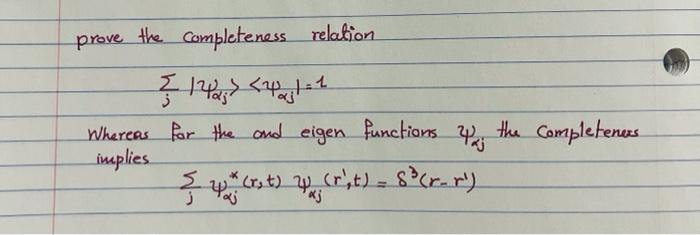 prove the completeness relation
Σ_j |ψ_αj> <ψ_αj| = 1
Whereas for the and eigen functions ψ_αj the completeness
implies
Σ_j ψ*_αj (r,t) ψ_αj (r',t) = δ³(r-r')